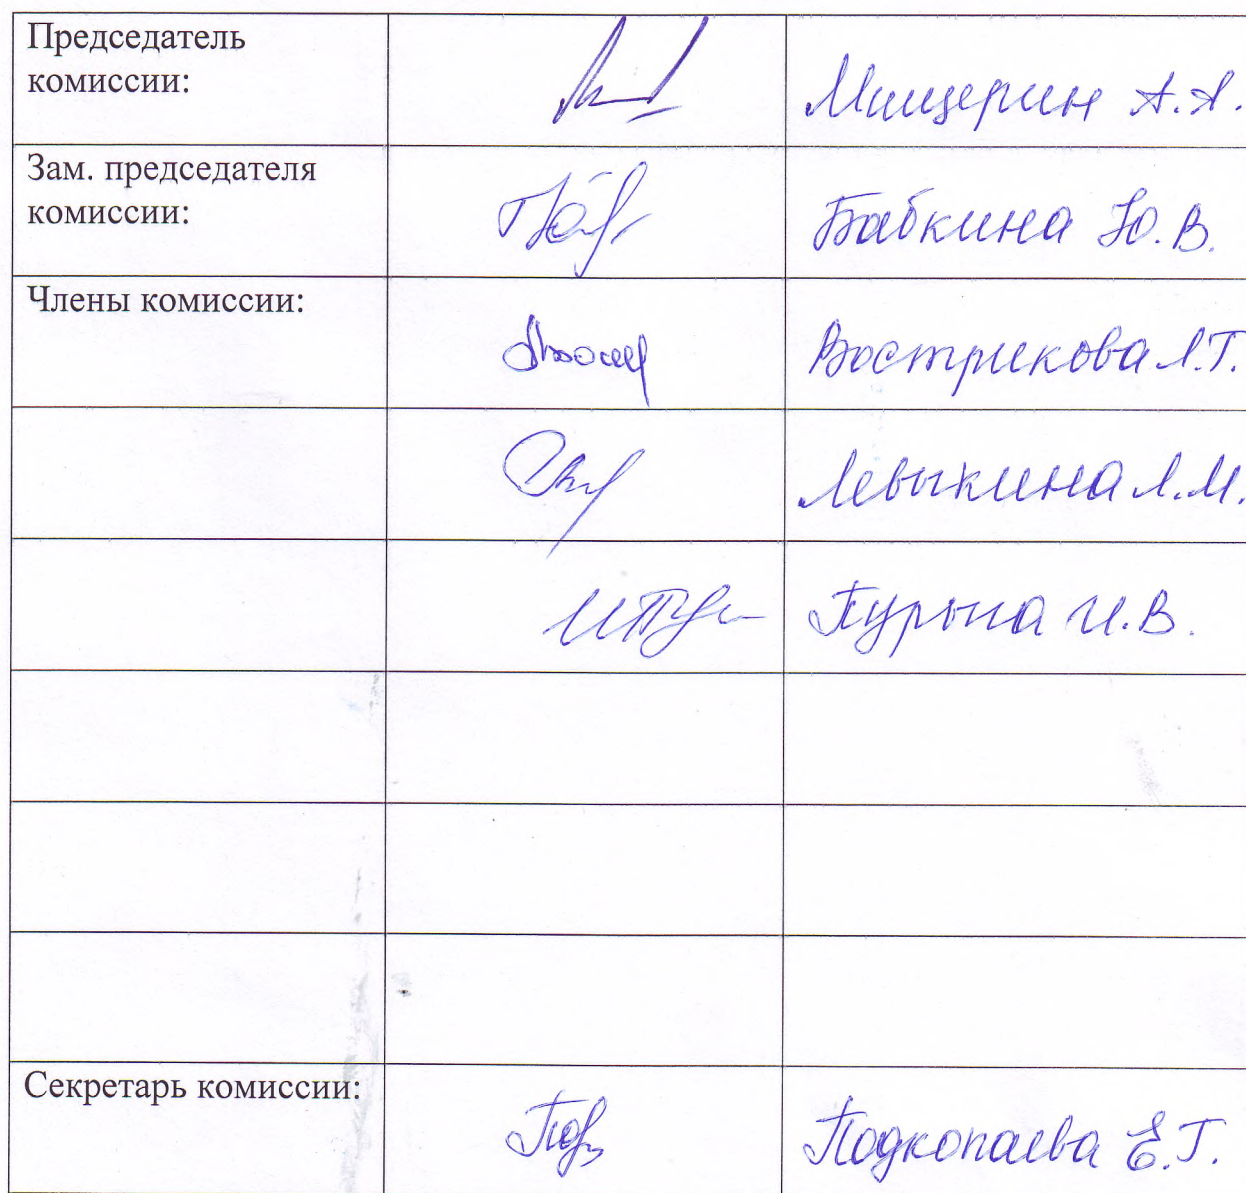 Председатель
комиссии:
Мищерин А.А.
Зам. председателя
комиссии:
Бабкина Ю.В.
Члены комиссии:
Вострикова Л.Т.
Левыкина Л.М.
И.В.
Секретарь комиссии:
Подкопаева Е.Г.